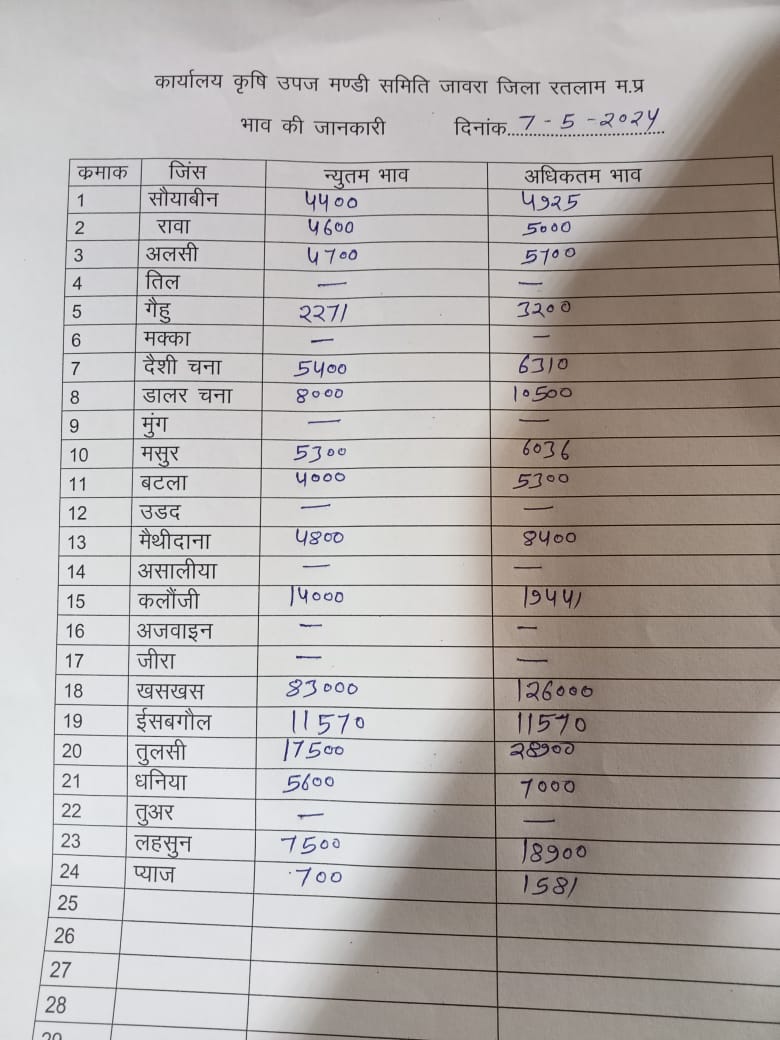 कार्यालय कृषि उपज मण्डी समिति जावरा जिला रतलाम म.प्र
भाव की जानकारी दिनांक 7-5-2024
क्रमाक जिंस न्युतम भाव अधिकतम भाव
1 सौयाबीन 4400 4925
2 रावा 4600 5000
3 अलसी 4700 5700
4 तिल — —
5 गैहु 2271 3200
6 मक्का — —
7 दैशी चना 5400 6310
8 डालर चना 8000 10500
9 मुंग — —
10 मसुर 5300 6036
11 बटला 4000 5300
12 उडद — —
13 मैथीदाना 4800 8400
14 असालीया — —
15 कलौंजी 14000 19441
16 अजवाइन — —
17 जीरा — —
18 खसखस 83000 126000
19 ईसबगौल 11570 11570
20 तुलसी 17500 28900
21 धनिया 5600 7000
22 तुअर — —
23 लहसुन 7500 18900
24 प्याज 700 1581
25
26
27
28